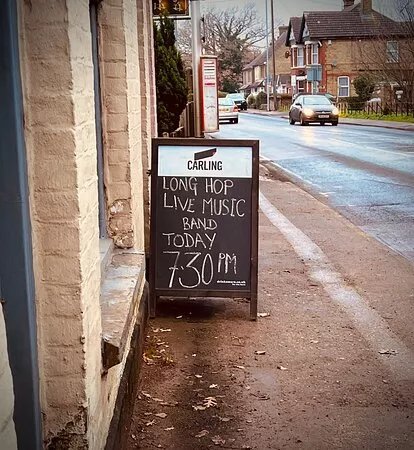 CARLING
LONG HOP
LIVE MUSIC
BAND
TODAY
7 30 PM